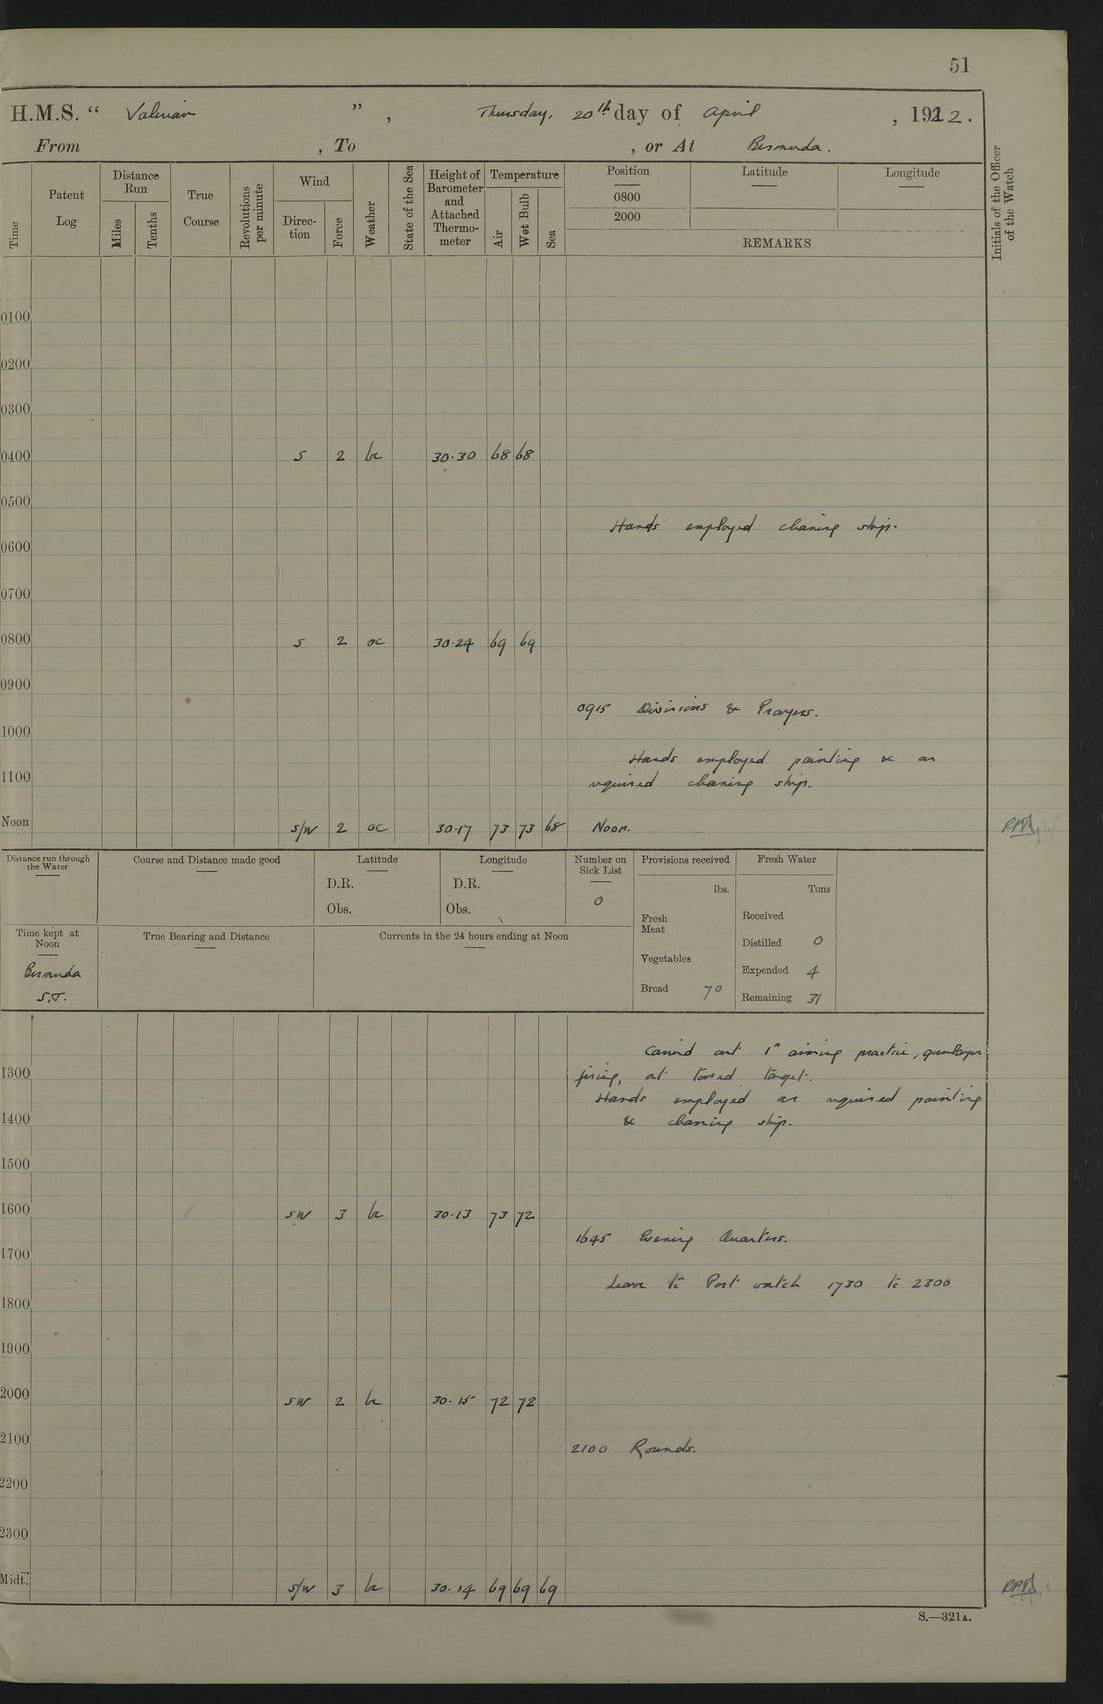 51
H.M.S. “ Valerian ” , Thursday, 20th day of April , 1922.
From , To , or At Bermuda.
Time
Patent Log
Distance Run
Miles
Tenths
True Course
Revolutions per minute
Wind
Direc-tion
Force
Weather
State of the Sea
Height of Barometer and Attached Thermo-meter
Temperature
Air
Wet Bulb
Sea
Position
0800
2000
Latitude
Longitude
REMARKS
Initials of the Officer of the Watch
0100
0200
0300
0400 S 2 bc 30·30 68 68
0500
Hands employed cleaning ship.
0600
0700
0800 S 2 oc 30·24 69 69
0900
0915 Divisions & Prayers.
1000
Hands employed painting & as
1100
required cleaning ship.
Noon S/W 2 oc 30·17 73 73 68 Noon.
Distance run through the Water
Course and Distance made good
Latitude
D.R.
Obs.
Longitude
D.R.
Obs.
Number on Sick List
0
Provisions received
lbs.
Fresh Meat
Vegetables
Bread 70
Fresh Water
Tons
Received
Distilled 0
Expended 4
Remaining 31
Time kept at Noon
Bermuda
S.T.
True Bearing and Distance
Currents in the 24 hours ending at Noon
Carried out 1" aiming practice, gunlayer
1300 firing, at towed target.
Hands employed as required painting
1400 & cleaning ship.
1500
1600 SW 3 bc 30·13 73 72
1645 Evening Quarters.
1700
Leave to Port watch 1730 to 2300
1800
1900
2000 SW 2 bc 30·15 72 72
2100
2100 Rounds.
2200
2300
Midt. S/W 3 bc 30·14 69 69 69
S.—321A.